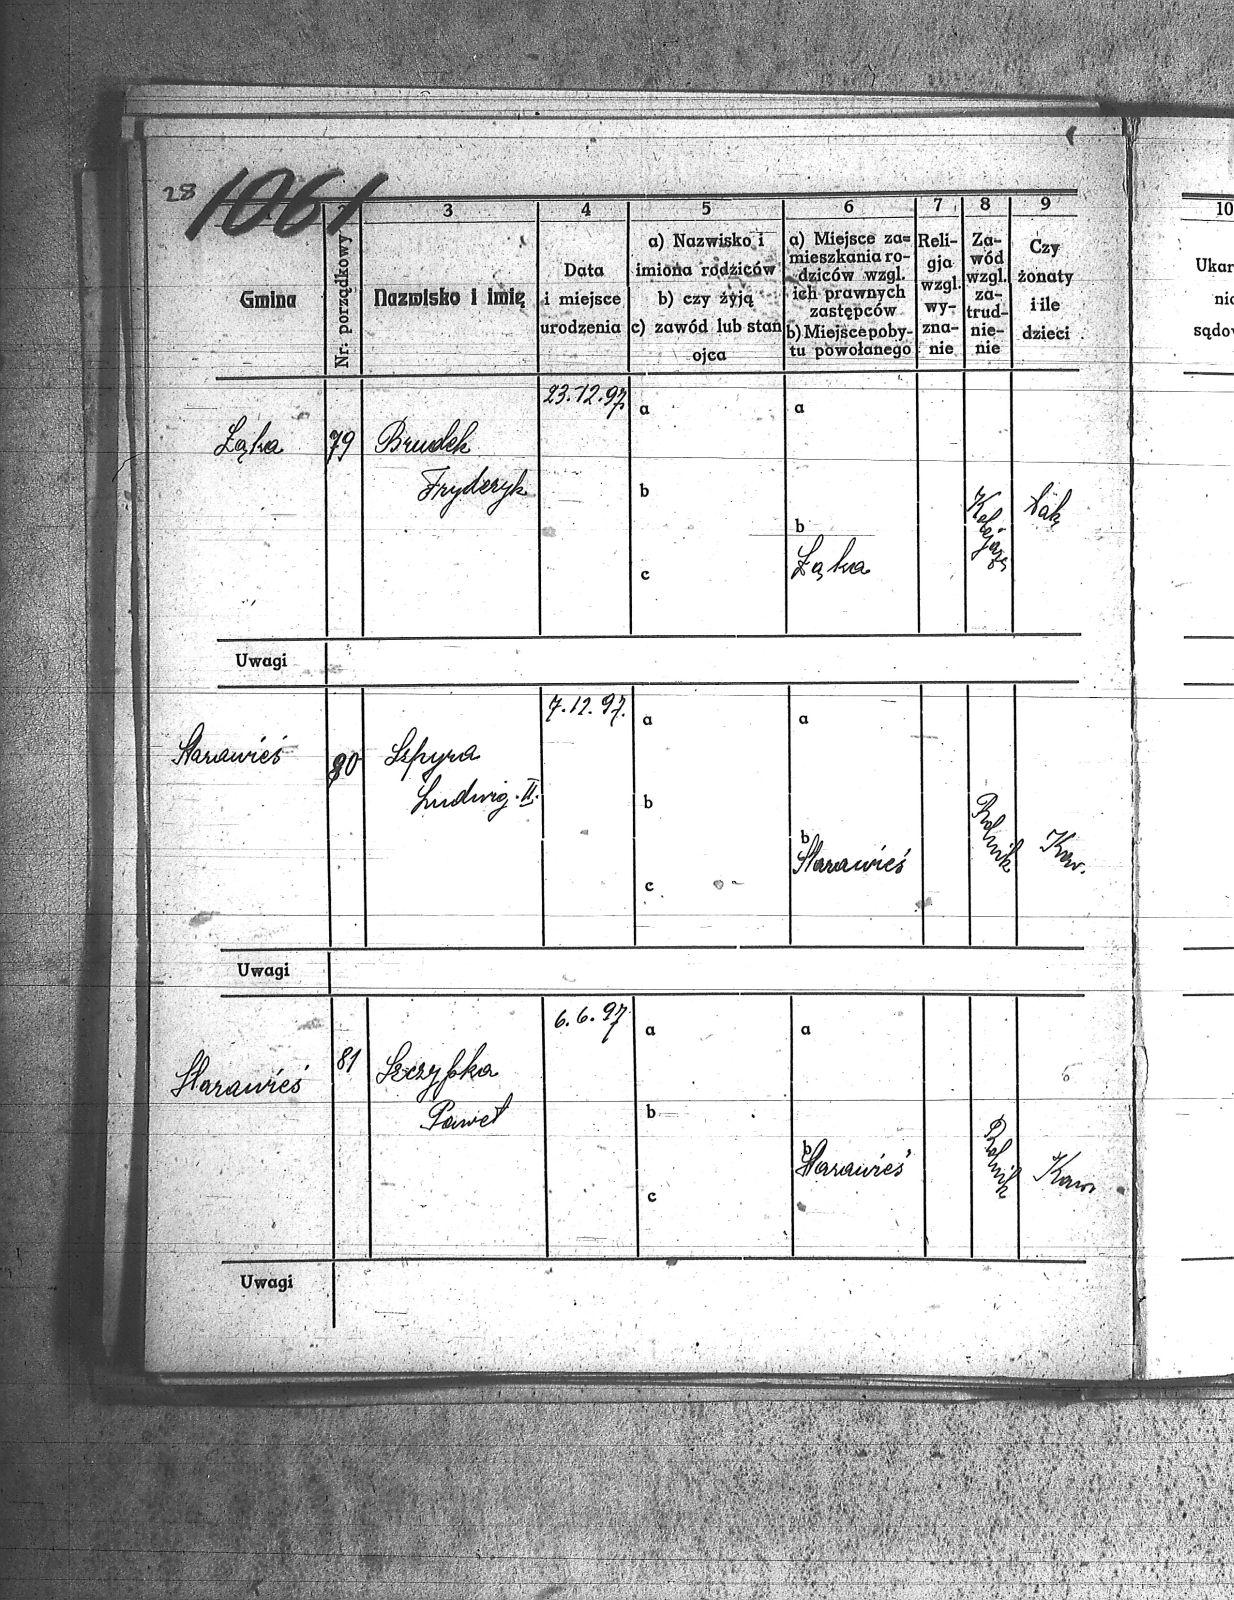 28 1061
2 3 4 5 6 7 8 9 10
Gmina
Nr. porządkowy
Nazwisko i imię
Data
i miejsce
urodzenia
a) Nazwisko i
imiona rodziców
b) czy żyją
c) zawód lub stan
ojca
a) Miejsce za=
mieszkania ro-
dziców wzgl.
ich prawnych
zastępców
b) Miejsce poby-
tu powołanego
Reli-
gja
wzgl.
wy-
zna-
nie
Za-
wód
wzgl.
za-
trud-
nie-
nie
Czy
żonaty
i ile
dzieci
Ukar
nic
sądov
Łąka 79 Brudek
Fryderyk
23.12.97
a
b
c
a
b
Łąka
Kolejarz
Uwagi
Starawieś 80 Szpyra
Ludwig. II.
7.12.97.
a
b
c
a
b
Starawieś
Rolnik
Kaw.
Uwagi
Starawieś 81 Szczypka
Paweł
6.6.97
a
b
c
a
b
Starawieś
Rolnik
Kaw.
Uwagi